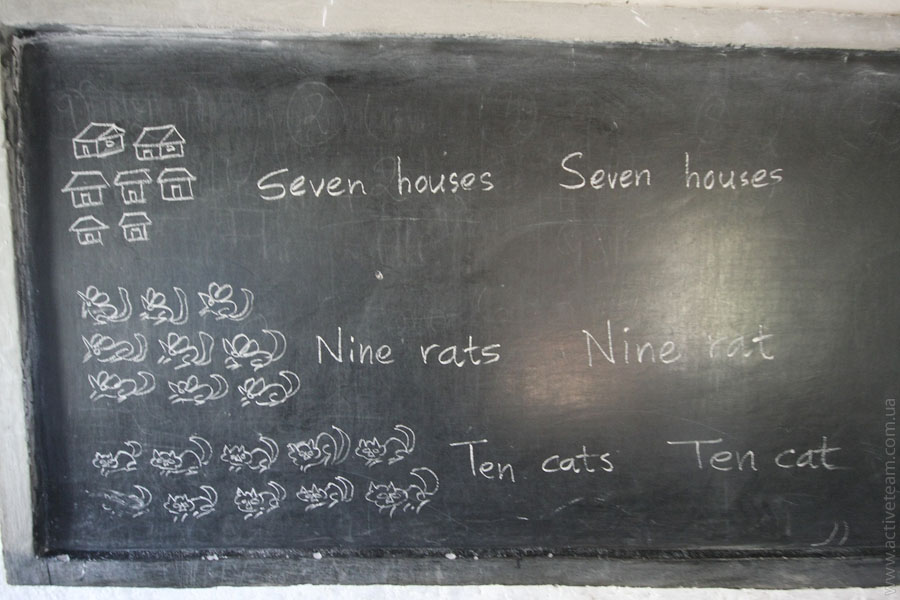 Seven houses Seven houses
Nine rats Nine rat
Ten cats Ten cat
www.activeteam.com.ua